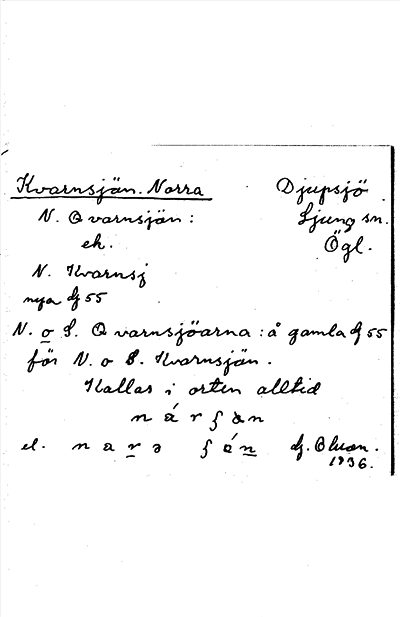 Kvarnsjön. Norra Djupsjö
N. Qvarnsjön: Ljung sn.
ek. Ögl.
N. Kvarnsj
nya 55
N. o S. Qvarnsjöarna: å gamla 55
för N. o S. Kvarnsjön.
Kallas i orten alltid
el.
1936.